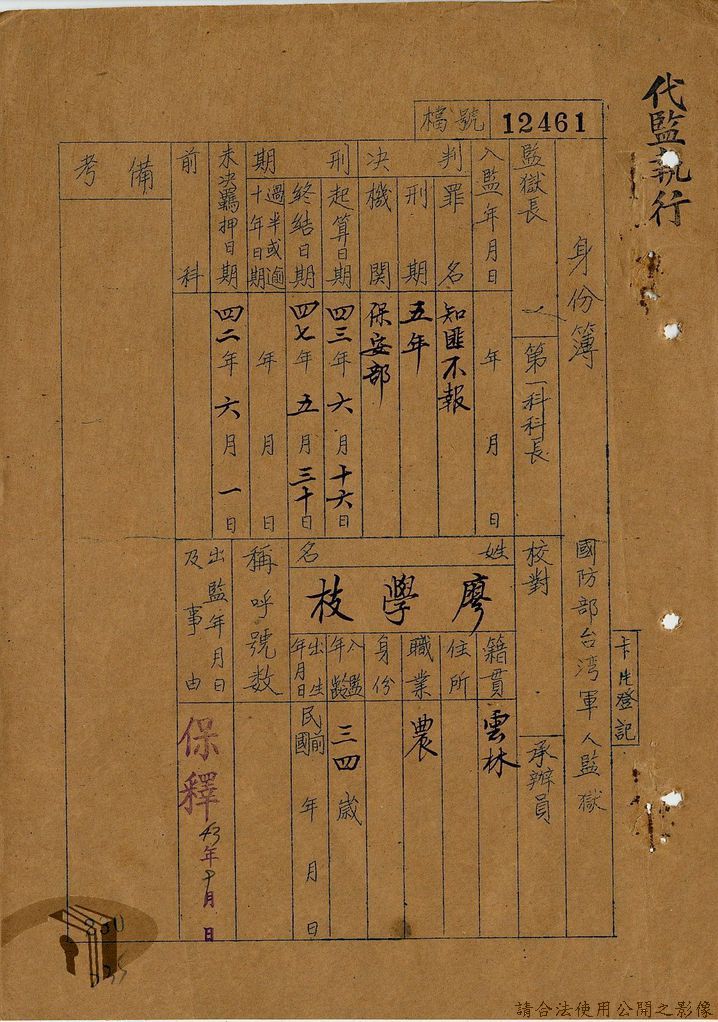 代監執行
檔號 12461
身份簿
國防部台湾軍人監獄
卡片登記
監獄長
第一科科長
校對
承辦員
入監年月日
年 月 日
判決
罪名
知匪不報
刑期
五年
機関
保安部
刑期
起算日期
四三年六月十六日
終結日期
四七年五月三十日
過半或逾十年日期
年 月 日
未決羈押日期
四二年六月一日
前科
備考
姓名
廖學枝
籍貫
雲林
住所
職業
農
身份
入監年齡
三四歲
出生年月日
民國前 年 月 日
稱呼號数
出監年月日及事由
保釋
43年十月 日
請合法使用公開之影像